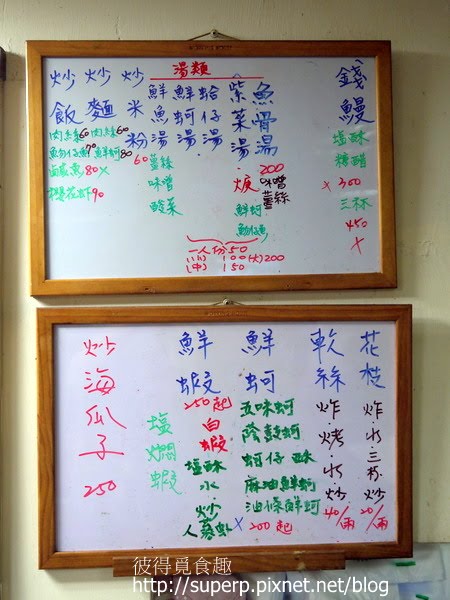 湯類
錢鰻
塩酥
糖醋
x 300
三杯
450
x
魚骨湯
200
味噌
薑絲
紫菜湯
焿
鮮蚵
蛤仔湯
鮮蚵湯
鮮魚湯
薑絲
味噌
酸菜
一人份50
(小) 100 (大)200
(中) 150
炒米粉
60
炒麵
肉絲60
鮮蚵80
炒飯
肉絲60
鹹魚80 x
櫻花蝦90
花枝
炸.水.三杯.炒
20/兩
軟絲
炸.烤.水.炒
40/兩
鮮蚵
五味蚵
蔭鼓蚵
蚵仔酥
麻油鮮蚵
油條鮮蚵
200起
鮮蝦
250起
白蝦
塩酥
水
炒
x
塩焗蝦
炒海瓜子
250
彼得覓食趣
http://superp.pixnet.net/blog